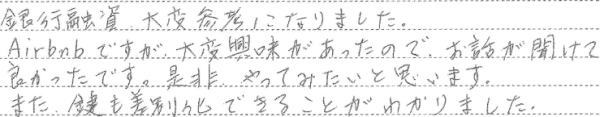 銀行融資、大変参考になりました。
Airbnbですが、大変興味があったので、お話が聞けて
良かったです。是非、やってみたいと思います。
また、鍵も差別化できることがわかりました。